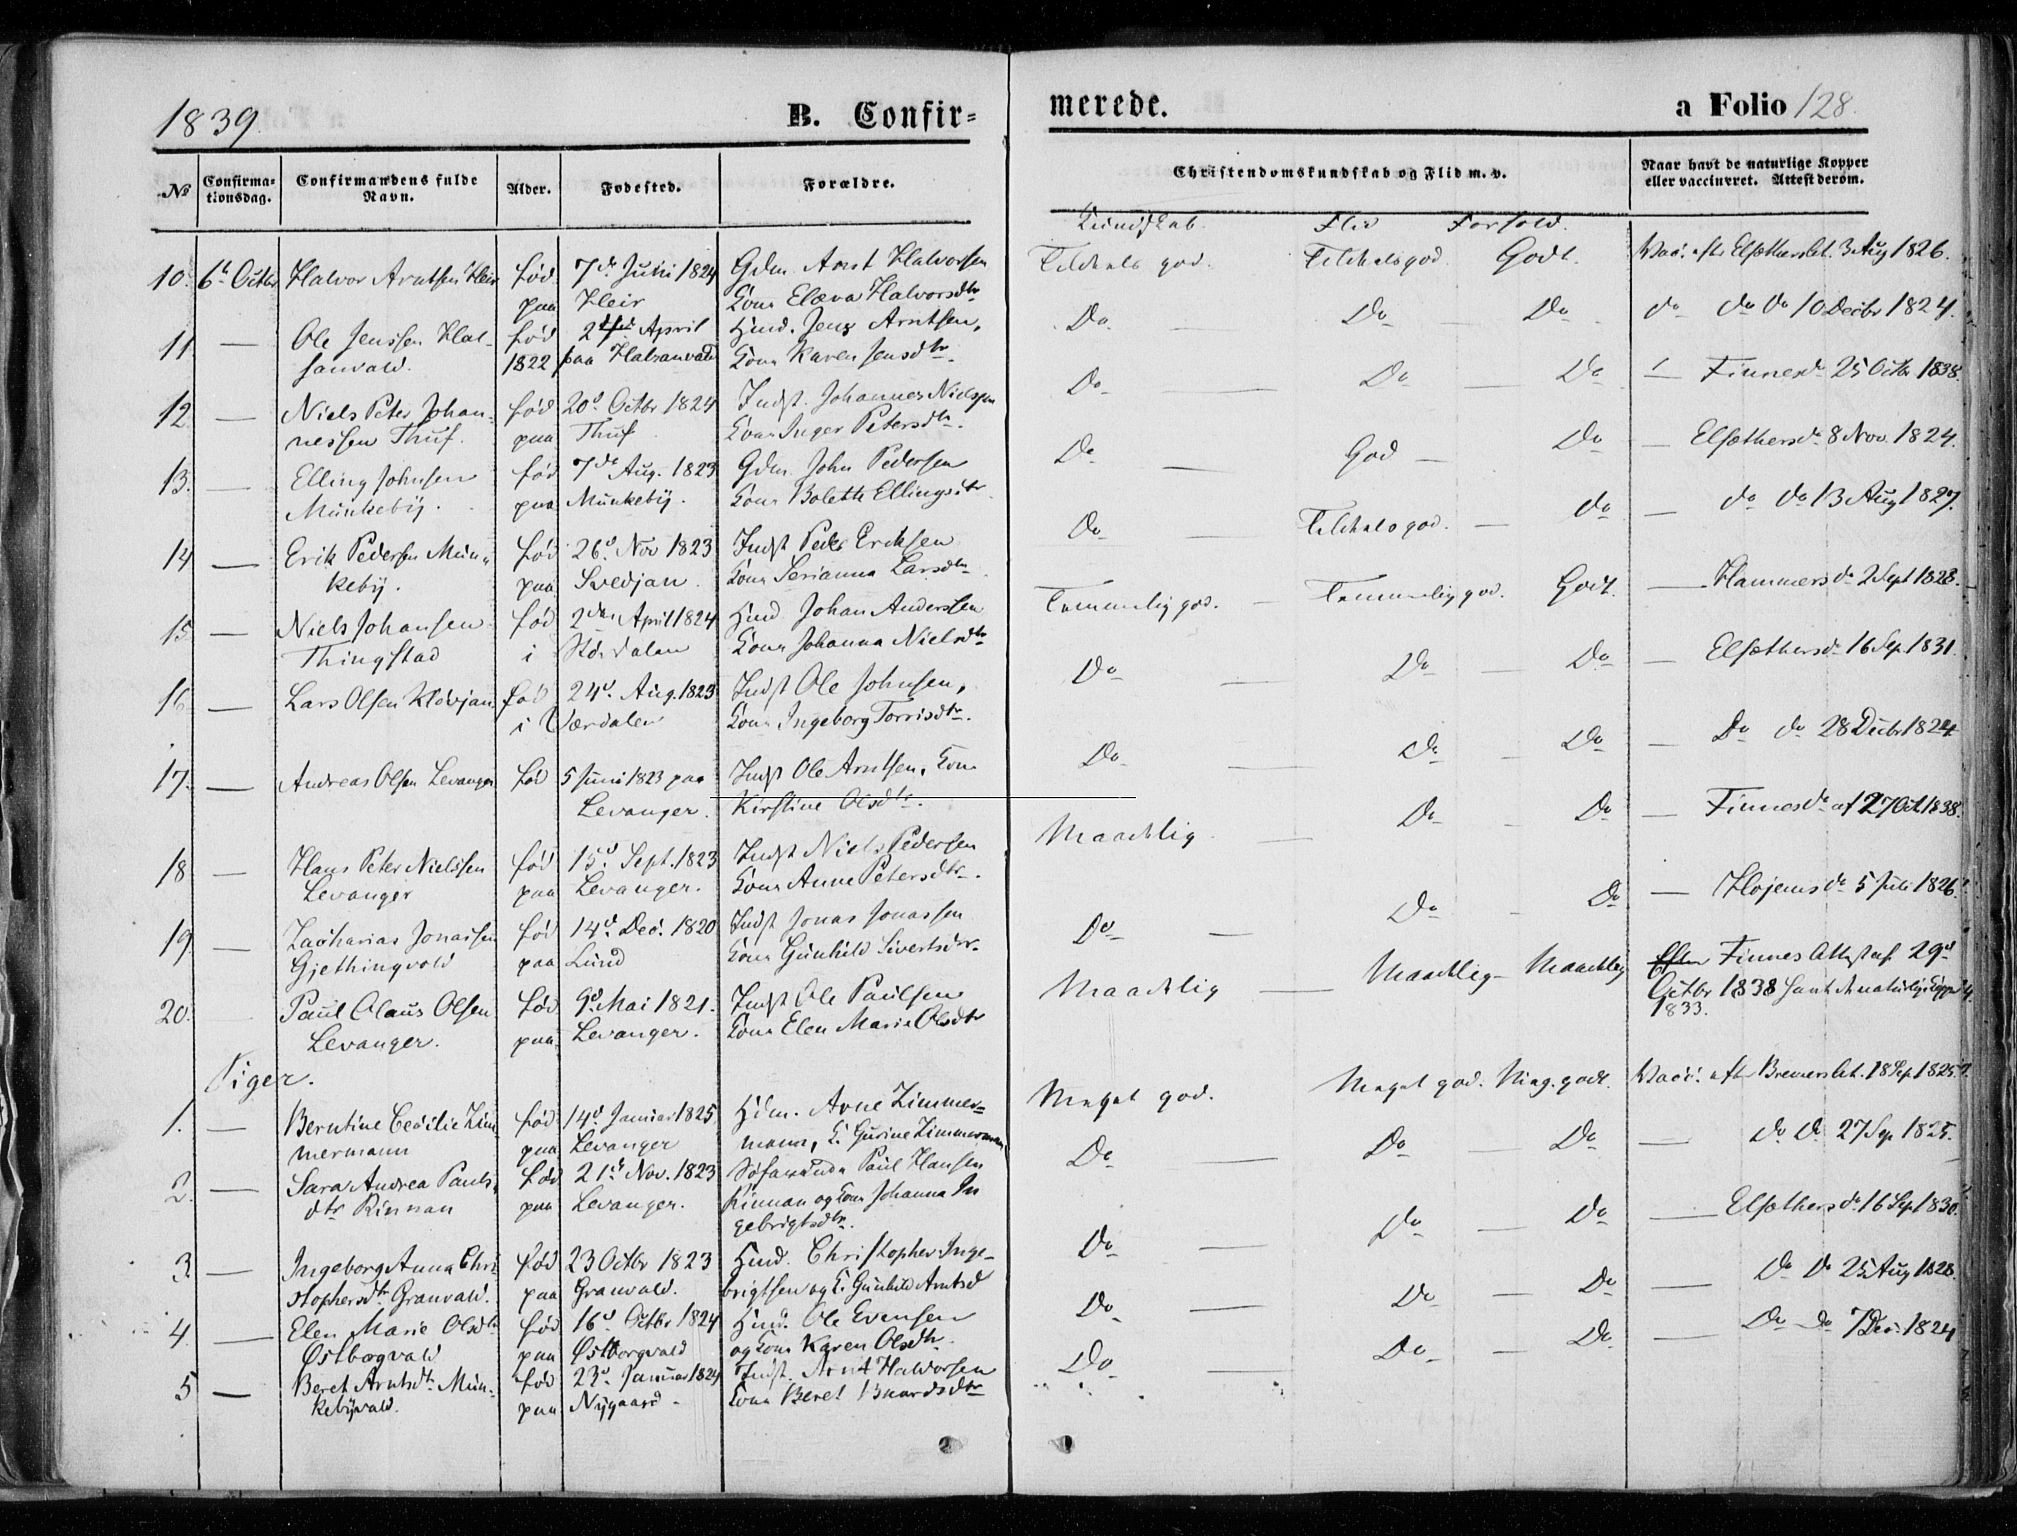 1839. B. Confirmerede. a Folio 128.
No Confirmationsdag. Confirmandens fulde Navn. Alder. Fødested. Forældre. Christendomskundskab og Flid m. v. Naar havt de naturlige Kopper eller vaccineret. Attest derom.
Kundskab. Flid Forhold.
10. 6te Octbr Halvor Arntsen Heir fød 7de Juni 1824 Gdm. Arnt Halvorsen Godt. Vacc. efter Elsæthers Att. 3 Aug 1826.
paa Heir Kone Elæva Halvorsdtr
11. — Ole Jenssen Hal- fød 2 April Hmd. Jens Arntsen, Do — Do — Do do do do 10 Decbr 1824.
sanvald. 1822 paa Halsanvald Kone Karen Jensdtr.
12. — Niels Peter Johan- fød 20d Octbr 1824 Indst. Johannes Nielssen Do — Do — Do — Finnes do 25 Octbr 1838.
nessen Thuf. paa Thuf. Kone Inger Petersdtr.
13. — Elling Johnsen fød 7de Aug. 1823 Gdm. John Pedersen Do — God — Do — Elsæthers do 8 Nov. 1824.
Munkeby. paa Munkeby. Kone Bolette Ellingsdtr
14 — Erik Pedersen Mun- fød 26d Nov 1823 Indst Peder Eriksen Do — do — do do 13 Aug 1827.
keby. paa Svedjan. Kone Serianna Larsdtr
15. — Niels Johansen fød 2den April 1824 Hmd Johan Andersen Temmelig god. — Temmelig god. Godt. — Hammers do 2 Sept 1828.
Thingstad i Stördalen Kone Johanna Nielsdtr
16 — Lars Olsen Klovjan fød 24d. Aug. 1823 Indst Ole Johnsen, Do — Do — Do — Elsæthers do 16 Sep. 1831.
i Værdalen Kone Ingeborg Torrisdtr.
17. — Andreas Olsen Levanger fød 5 Juni 1823 paa Indst Ole Arntsen, Kone Do — Do — Do — Do do 28 Decbr 1824
Levanger. Kirstine Olsdtr.
18 — Hans Peter Nielssen fød 15d Sept. 1823 Indst Niels Pedersen Maadelig — Do — Do — Finnes do af 27 Oct. 1838.
Levanger paa Levanger. Kone Anne Petersdtr.
19. — Zacharias Jonassen fød 14d. Dec. 1820 Indst Jonas Jonassen Do — Do — Do — Hojems do 5 Juli 1826.
Gjethingvold paa Lund Kone Gunhild Sivertsdtr.
20. Paul Olaus Olsen fød 9d Mai 1821. Indst Ole Paulsen Maadelig — Maadelig — Maadelig Finnes Attest af 29d
Levanger. paa Levanger. Kone Elen Marie Olsdtr Octbr 1838 havt de naturlige Kopper
1833.
Piger.
1. — Berntine Cecilie Zim- fød 14d Januar 1825 Hdm. Arne Zimmer- Meget god. Meget god. Meg. godt. Vacc. efter Bremers Att. 18 Sep. 1825.
mermann paa Levanger mann, K. Gurine Zimmermann
2. — Sara Andrea Pauls- fød 21de Nov. 1823 Paul Hansen Do — Do — Do — do do 27 Sep. 1825.
dtr Rinnan paa Levanger. Rinnan og Kone Johanna In
gebrigtsdtr.
3. — Ingeborg Anna Chri fød 23 Octbr 1823 Hmd. Christopher Inge- Do — Do — Do — Elsæthers do 16 Sep 1830.
stophersdtr Granvald. paa Granvald. brigtsen og K. Gunhild Arntsd
4. — Elen Marie Olsdtr fød 16d Octbr 1824 Hmd. Ole Evensen Do — Do — Do — Do do 25 Aug 1828.
Østborgvald paa Østborgvald og Kone Karen Olsdtr.
5 — Beret Arntsdtr Mun- fød 23d. Januar 1824 Indst. Arnt Halvorsen Do — Do — Do — Do do 7 Dec. 1824
kebyvald. paa Nygaard. Kone Beret